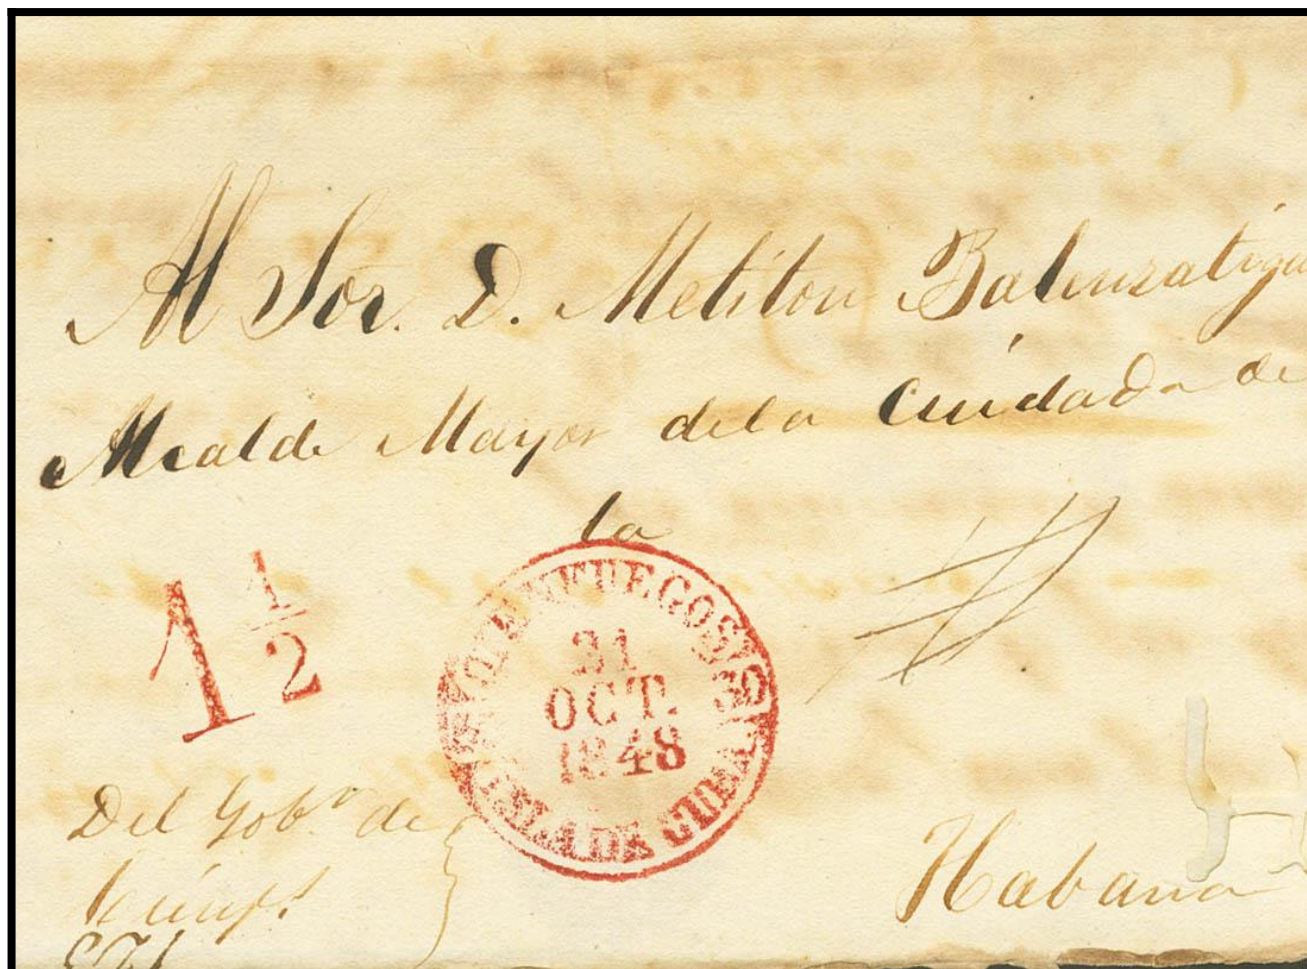 Al Sor. D. Meliton Balenzategu
Alcalde Mayor de la Cuidad de
la
1 1/2
CIENFUEGOS
30
31
OCT.
1848
ISLA DE CUBA
Del Gobr. de
Habana